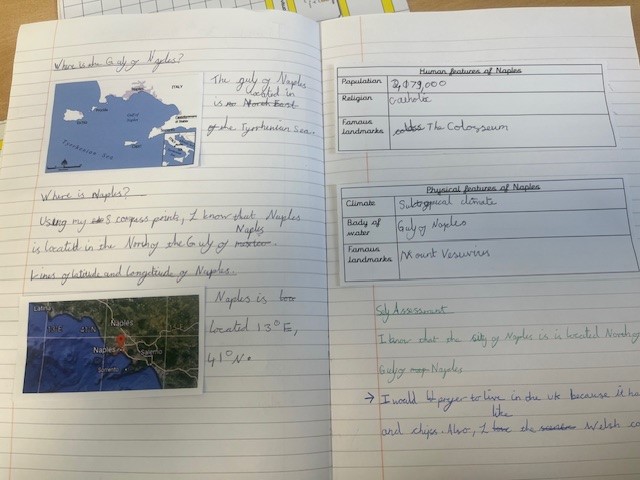 Where is the Gulf of Naples?
The gulf of Naples
is located in
North East
of the Tyrrhenian Sea.
ITALY
Tyrrhenian Sea
Where is Naples?
Using my 8 compass points, I know that Naples
is located in the North of the Gulf of Naples.
Lines of latitude and Longitude of Naples.
Latina
13°E
41°N
Naples
Naples
Salerno
Sorrento
Naples is
located 13°E,
41°N.
Human features of Naples
Population
2,179,000
Religion
Catholic
Famous landmarks
The Colosseum
Physical features of Naples
Climate
Subtropical climate
Body of water
Gulf of Naples
Famous landmarks
Mount Vesuvius
Self Assessment
I know that the city of Naples is is located North of
Gulf of Naples
→ I would prefer to live in the uk because it ha
and chips. Also, I like the Welsh co